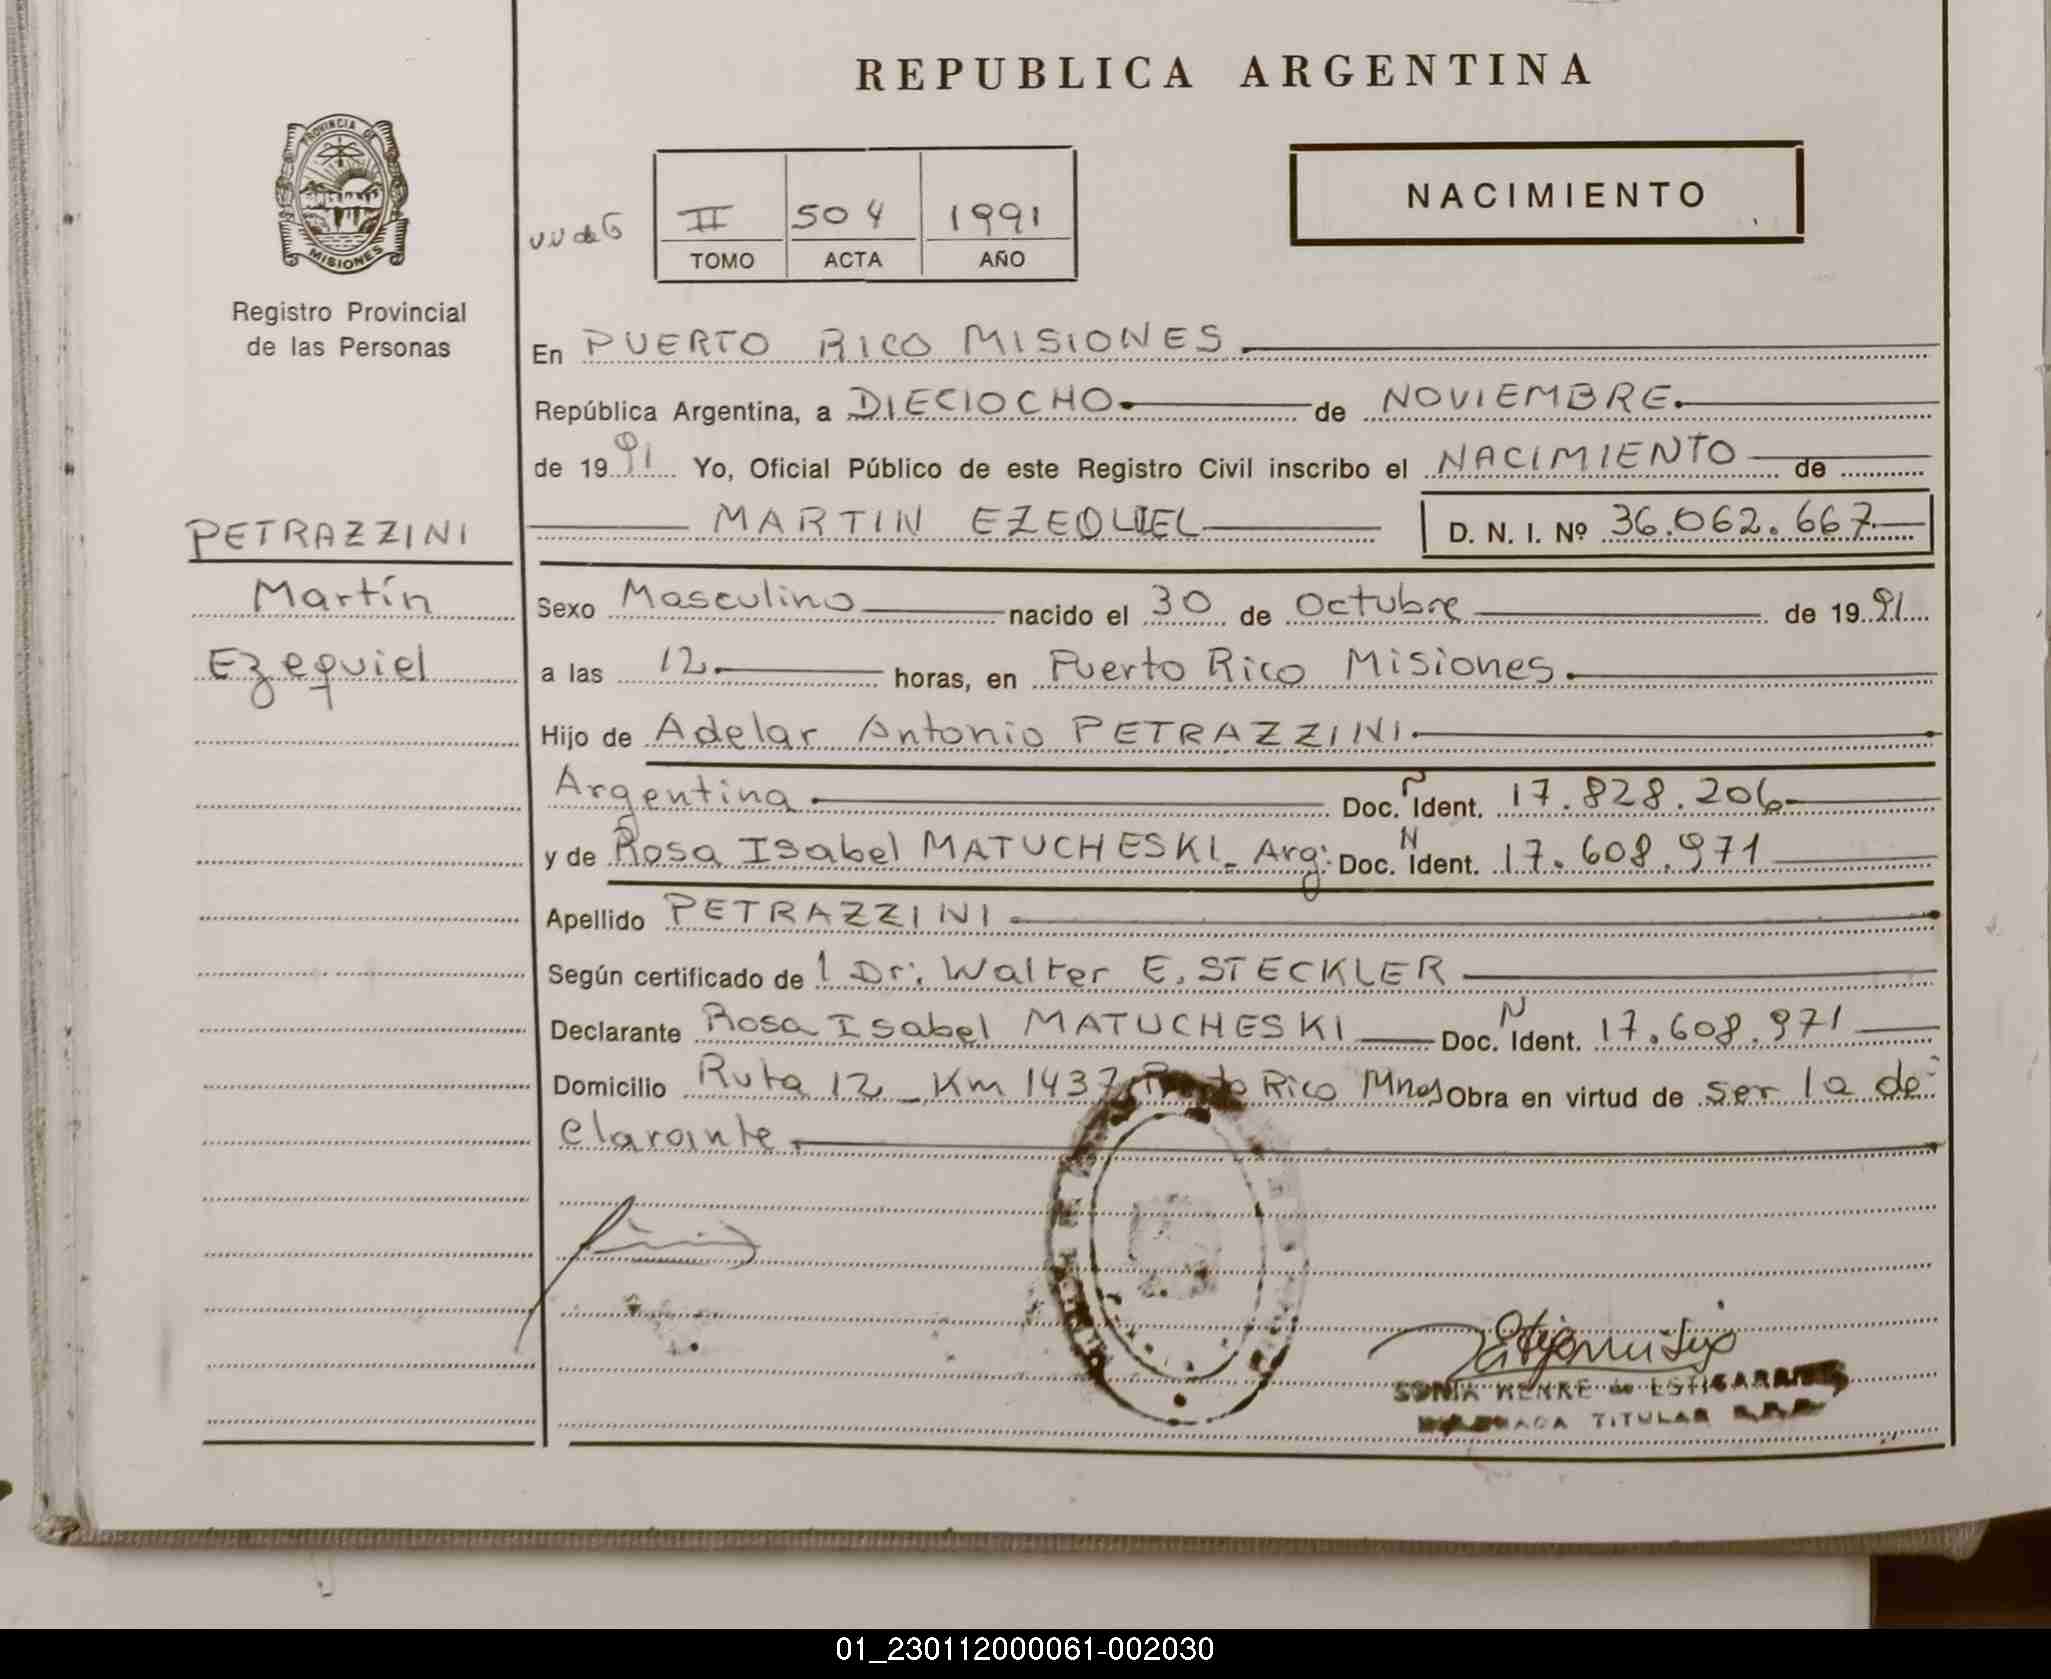 REPUBLICA ARGENTINA
PROVINCIA DE
MISIONES
Registro Provincial
de las Personas
II 504 1991
TOMO ACTA AÑO
NACIMIENTO
En PUERTO RICO MISIONES
República Argentina, a DIECIOCHO de NOVIEMBRE
de 1991 Yo, Oficial Público de este Registro Civil inscribo el NACIMIENTO de
PETRAZZINI
Martín
Ezequiel
MARTIN EZEQUIEL D. N. I. Nº 36.062.667
Sexo Masculino nacido el 30 de Octubre de 1991
a las 12 horas, en Puerto Rico Misiones
Hijo de Adelar Antonio PETRAZZINI
Argentina Doc. N Ident. 17.828.206
y de Rosa Isabel MATUCHESKI Arg: Doc. N Ident. 17.608.971
Apellido PETRAZZINI
Según certificado de l Dr. Walter E. STECKLER
Declarante Rosa Isabel MATUCHESKI Doc. N Ident. 17.608.971
Domicilio Ruta 12 Km 1437 Puerto Rico Mnes Obra en virtud de ser la de-
clarante
SONIA HENKE de ESTIGARRIBIA
TITULAR
01_230112000061-002030